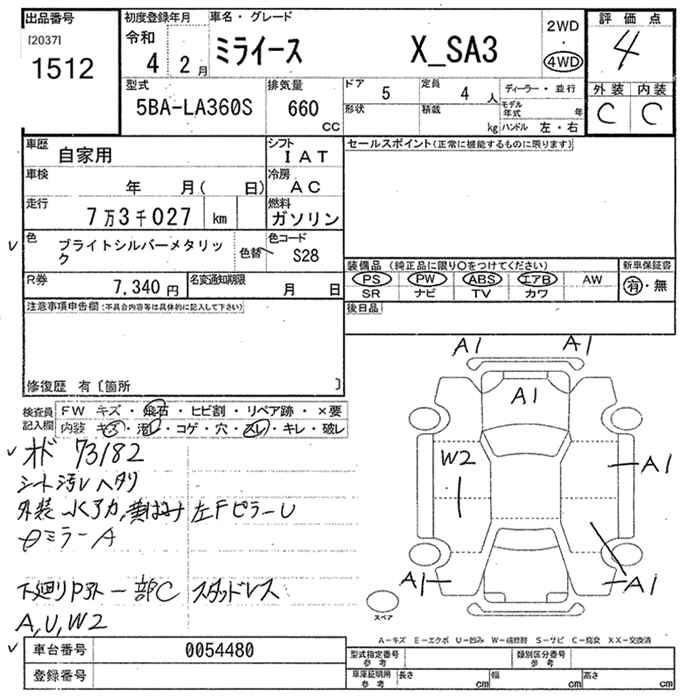 出品番号
[2037]
1512
初度登録年月
令和
4 2月
車名・グレード
ミライース X_SA3
2WD
・
4WD
評価点
4
外装 内装
C C
型式
5BA-LA360S
排気量
660
CC
ドア
5
定員
4人
形状
積載
kg
ディーラー・並行
モデル年式 年
ハンドル 左・右
車歴
自家用
シフト
IAT
車検
年 月( 日)
冷房
AC
走行
7万3千027 km
燃料
ガソリン
色
ブライトシルバーメタリック
色替
色コード
S28
R券
7,340円
名変通知期限
月 日
セールスポイント(正常に機能するものに限ります)
装備品 (純正品に限り○をつけてください)
PS PW ABS エアB AW
SR ナビ TV カワ
新車保証書
有・無
後日品
注意事項申告欄(不具合内容等は具体的に記入して下さい)
修復歴 有〔箇所 〕
検査員記入欄
FW キズ・飛石・ヒビ割・リペア跡・×要
内装 キズ・汚レ・コゲ・穴・スレ・キレ・破レ
73182
シート汚レヘタリ
左Fピラー U
ミラーA
一部C スタッドレス
A,U,W2
A1 A1
A1
W2
A1
A1 A1
スペア
A-キズ E-エクボ U-凹み W-補修跡 S-サビ C-腐食 XX-交換済
車台番号
0054480
登録番号
型式指定番号
参考
類別区分番号
参考
車庫証明用
参考
長さ cm
幅 cm
高さ cm